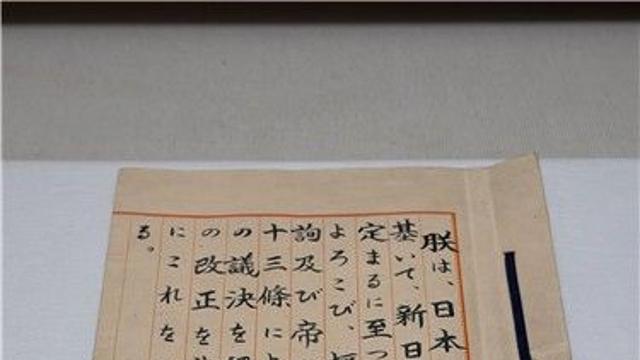 朕は、日本
基いて、新日
定まるに至つ
よろこび、
詢及び帝
十三條に
の議決を
の改正を
にこれを
る。